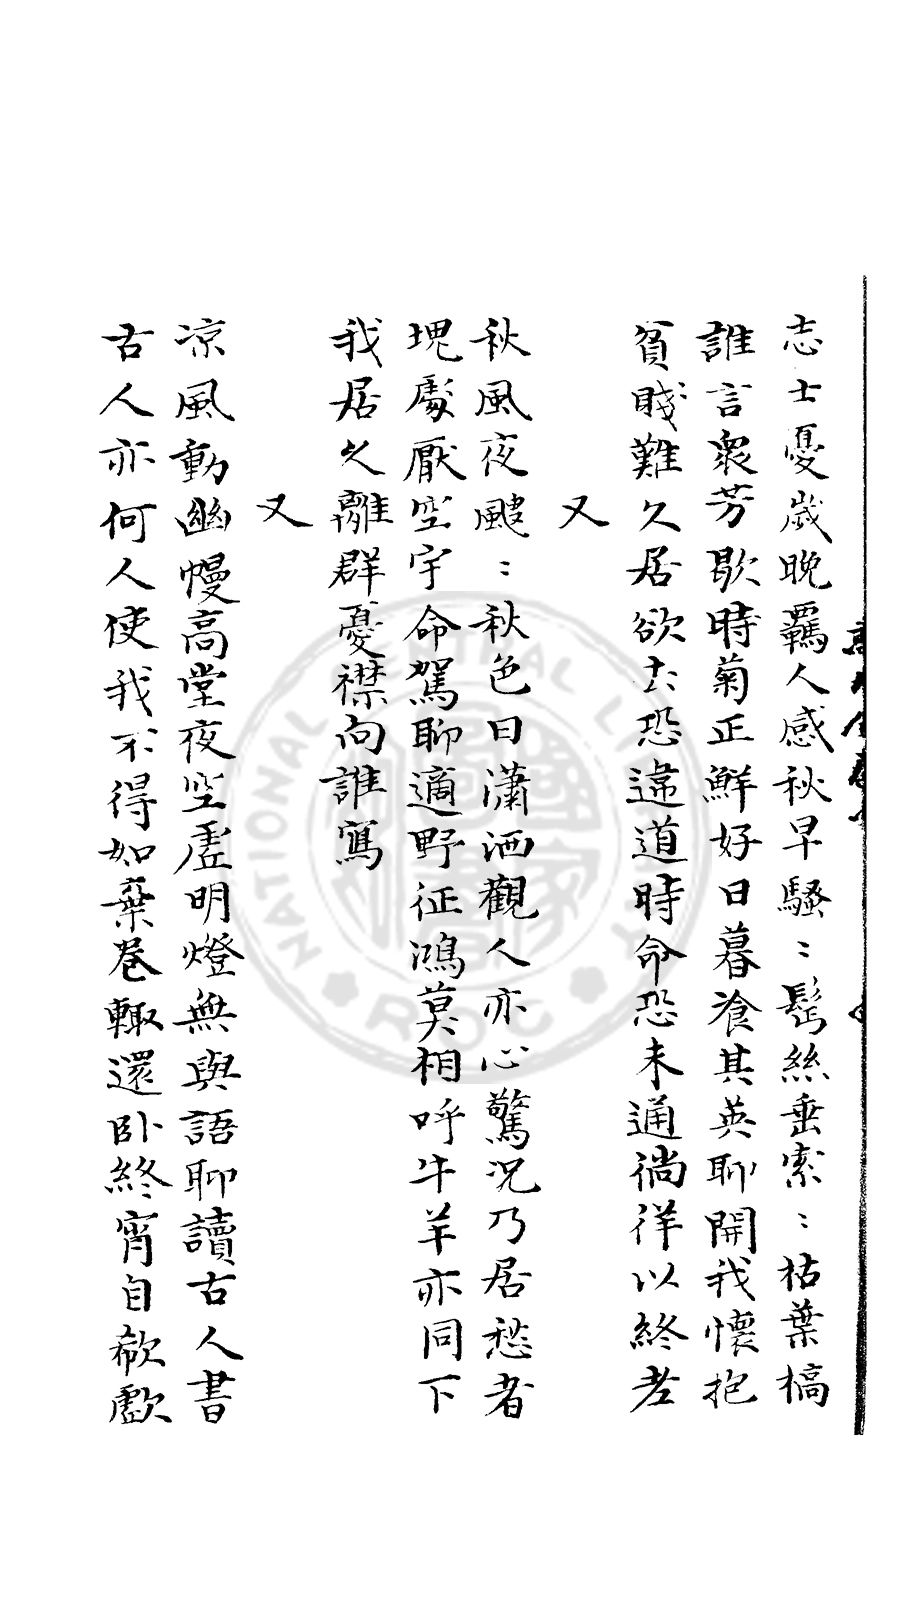 志士憂歲晚羈人感秋早騷〻髩絲垂索〻枯葉槁
誰言衆芳歇時菊正鮮好日暮飡其英聊開我懷抱
貧賤難久居欲去恐違道時命恐未通徜徉以終老
又
秋風夜颼〻秋色日瀟洒觀人亦心驚況乃居愁者
塊處厭空宇命駕聊適野征鴻莫相呼牛羊亦同下
我居久離群憂襟向誰寫
又
凉風動幽幔高堂夜空虛明燈無與語聊讀古人書
古人亦何人使我不得如棄卷輙還卧終宵自欷歔
NATIONAL CENTRAL LIBRARY R.O.C.